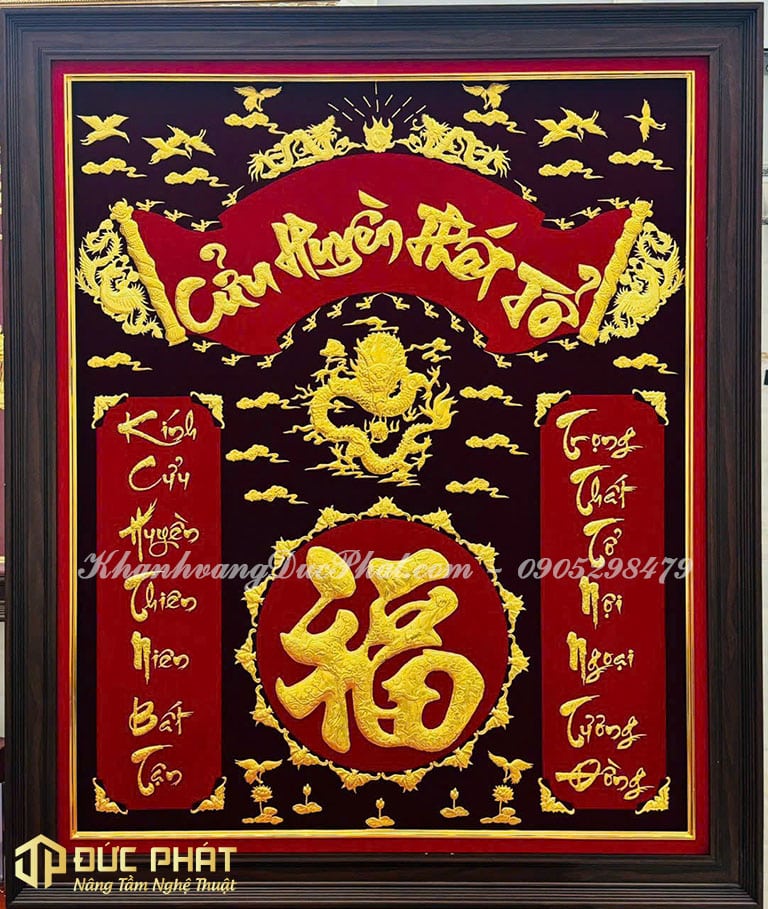 Cửu Huyền Thất Tổ
Kính
Cửu
Huyền
Thiên
Niên
Bất
Tận
Trọng
Thất
Tổ
Nội
Ngoại
Tưởng
Đồng
福
KhanhvangDucPhat.com - 0905298479
ĐỨC PHÁT
Nâng Tầm Nghệ Thuật